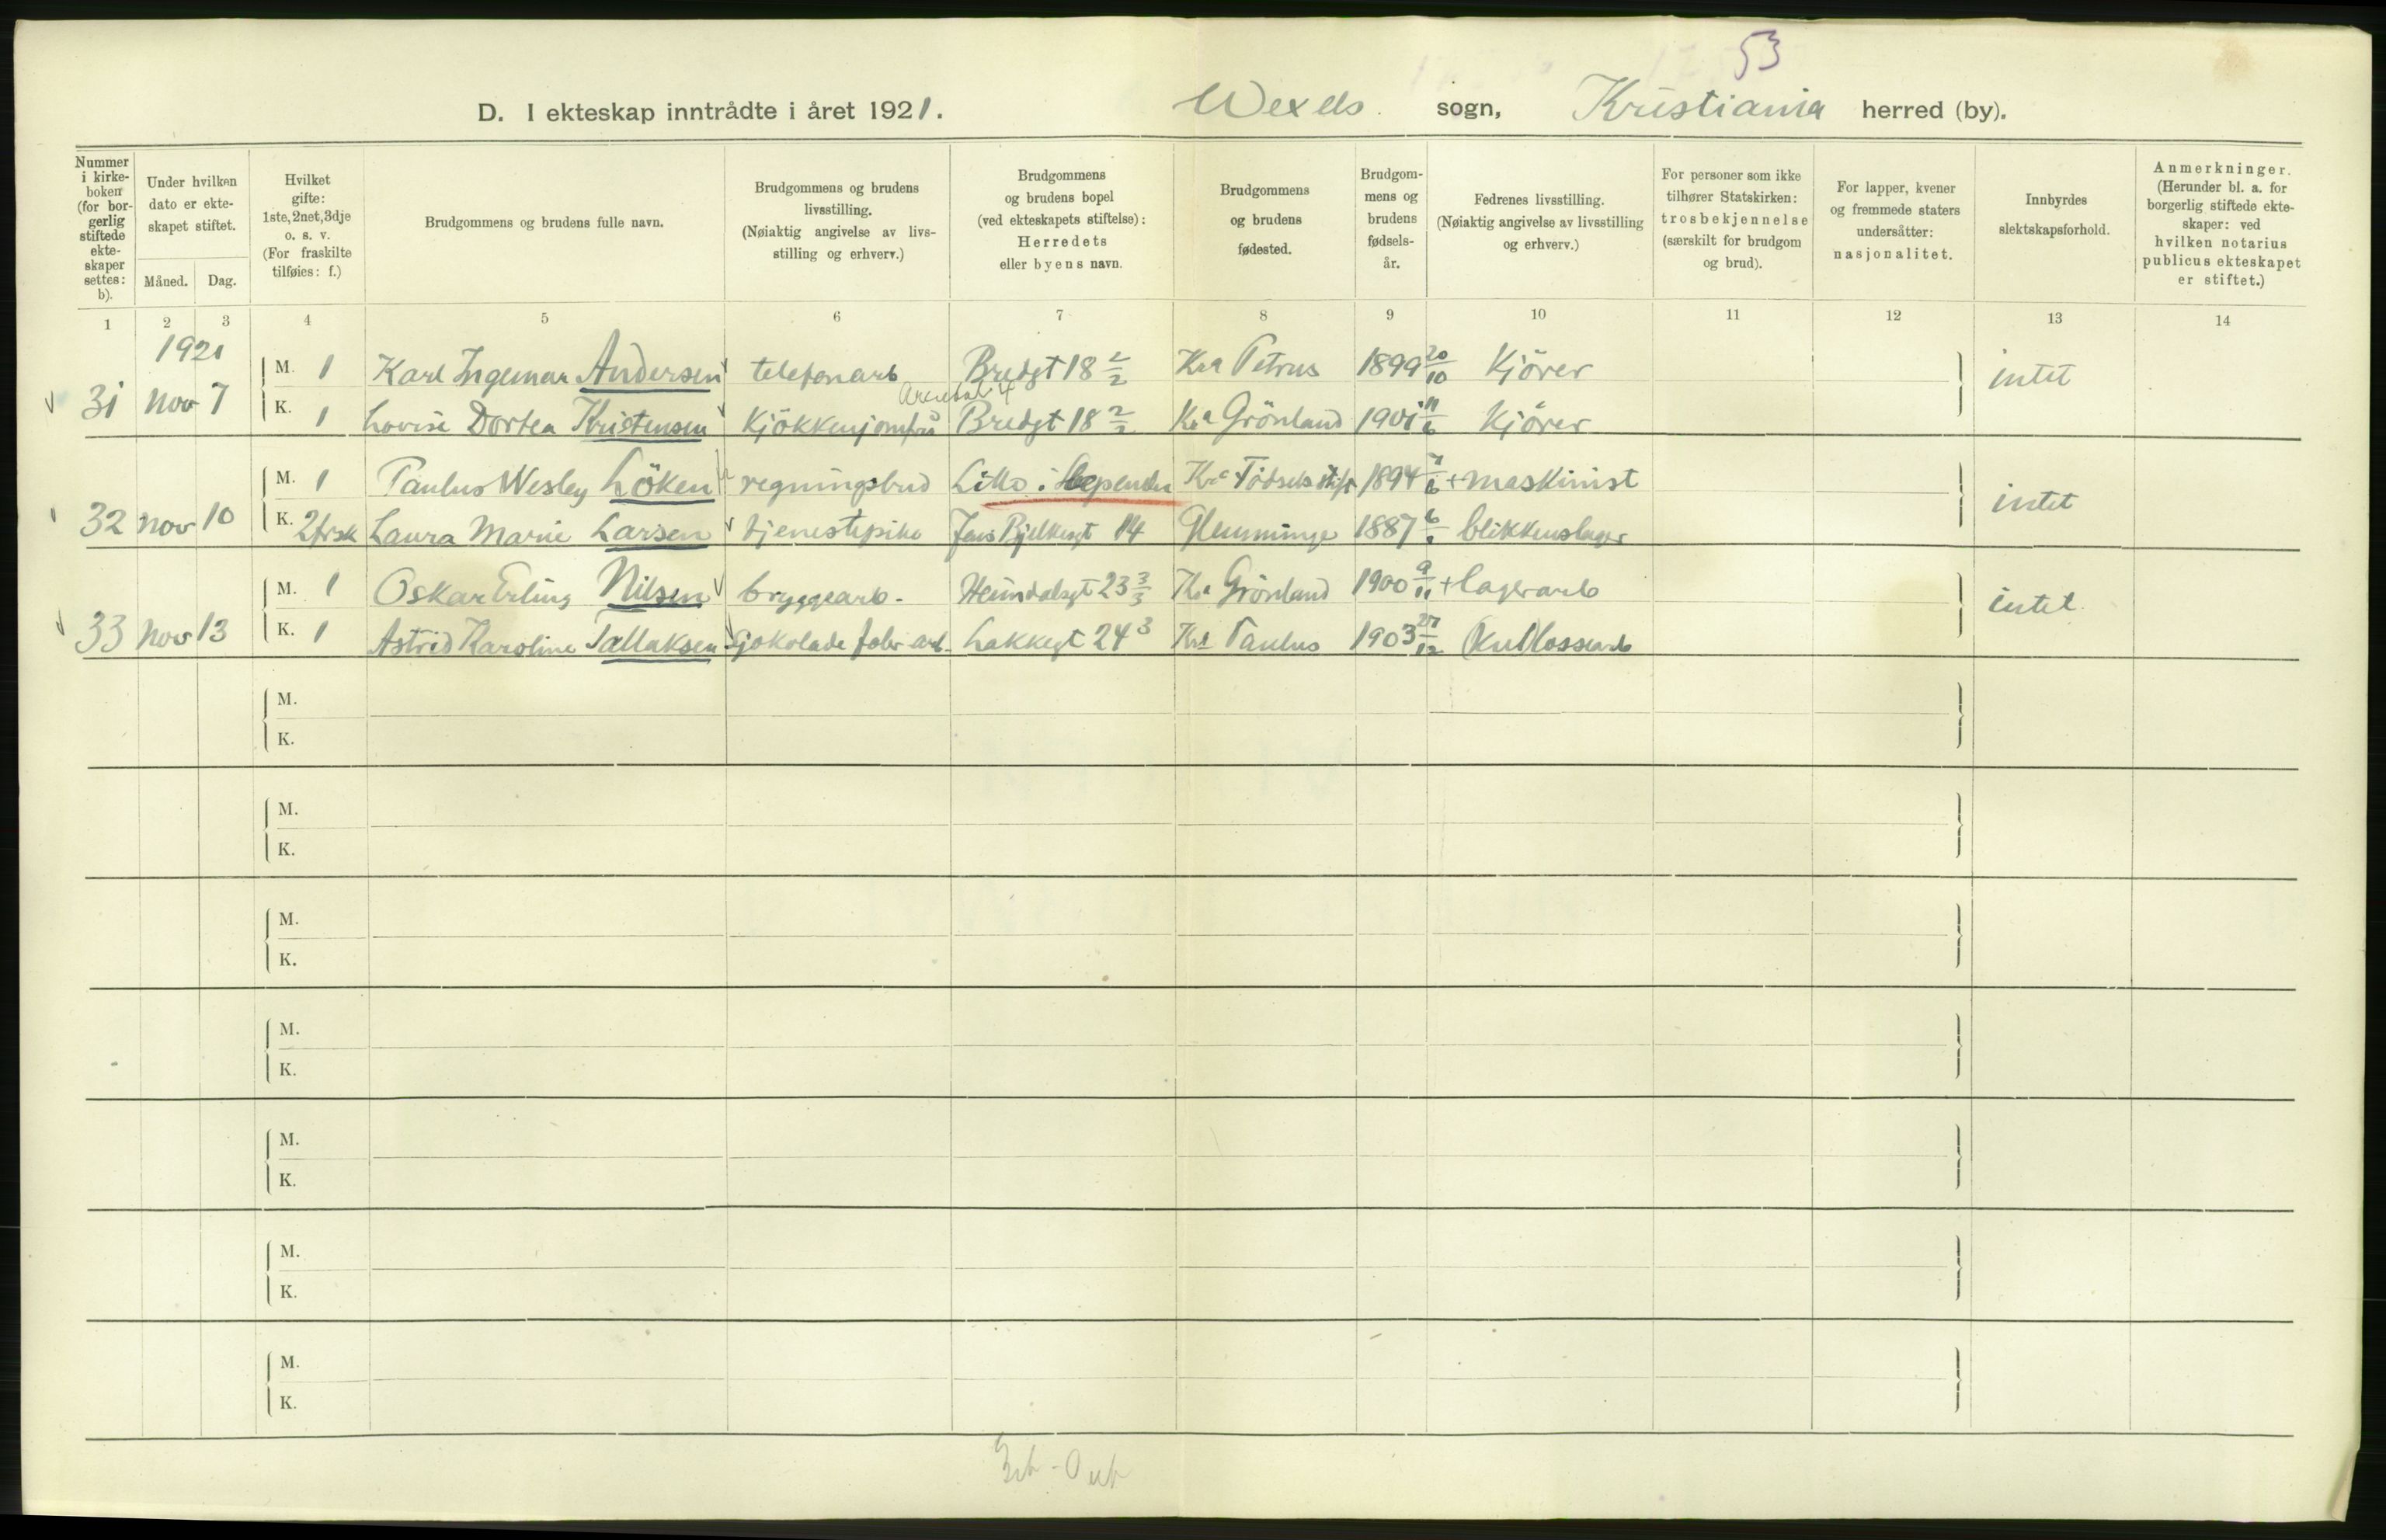 53
D. I ekteskap inntrådte i året 1921. Wexels sogn, Kristiania herred (by).
Nummer i kirkeboken (for borgerlig stiftede ekteskaper settes: b).
Under hvilken dato er ekteskapet stiftet.
Måned. Dag.
Hvilket gifte: 1ste, 2net, 3dje o. s. v. (For fraskilte tilføies: f.)
Brudgommens og brudens fulle navn.
Brudgommens og brudens livsstilling. (Nøiaktig angivelse av livsstilling og erhverv.)
Brudgommens og brudens bopel (ved ekteskapets stiftelse): Herredets eller byens navn.
Brudgommens og brudens fødested.
Brudgommens og brudens fødselsår.
Fedrenes livsstilling. (Nøiaktig angivelse av livsstilling og erhverv.)
For personer som ikke tilhører Statskirken: trosbekjennelse (særskilt for brudgom og brud).
For lapper, kvener og fremmede staters undersåtter: nasjonalitet.
Innbyrdes slektskapsforhold.
Anmerkninger. (Herunder bl. a. for borgerlig stiftede ekteskaper: ved hvilken notarius publicus ekteskapet er stiftet.)
1 2 3 4 5 6 7 8 9 10 11 12 13 14
1921
M. 1 Karl Ingemar Andersen telefonarb Bredgt 18 2/2 Kra Petrus 1899 20/10 Kjörer
31 nov 7 intet
K. 1 Lovise Dortea Kristensen Kjökkenjomfru Bredgt 18 2/2 Kra Grönland 1901 11/6 Kjörer
M. 1 Paulus Wesley Löken regningsbud Kra Födselsstift 1894 + maskinist
32 nov 10 intet
K. 2 frsk Laura Marie Larsen tjenestepike Jens Bjelkesgt 14 Glemminge 1887 blikkenslager
M. 1 Oskar Erling Nilsen bryggearb. Heimdalsgt 23 3/3 Kra Grönland 1900 9/11 + lagerarb
33 nov 13 intet
K. 1 Astrid Karoline Tallaksen Sjokolade fabr. arb. Lakkegt 24 3 Kra Paulus 1903 27/12 Kullossearb
M.
K.
M.
K.
M.
K.
M.
K.
M.
K.
M.
K.
M.
K.